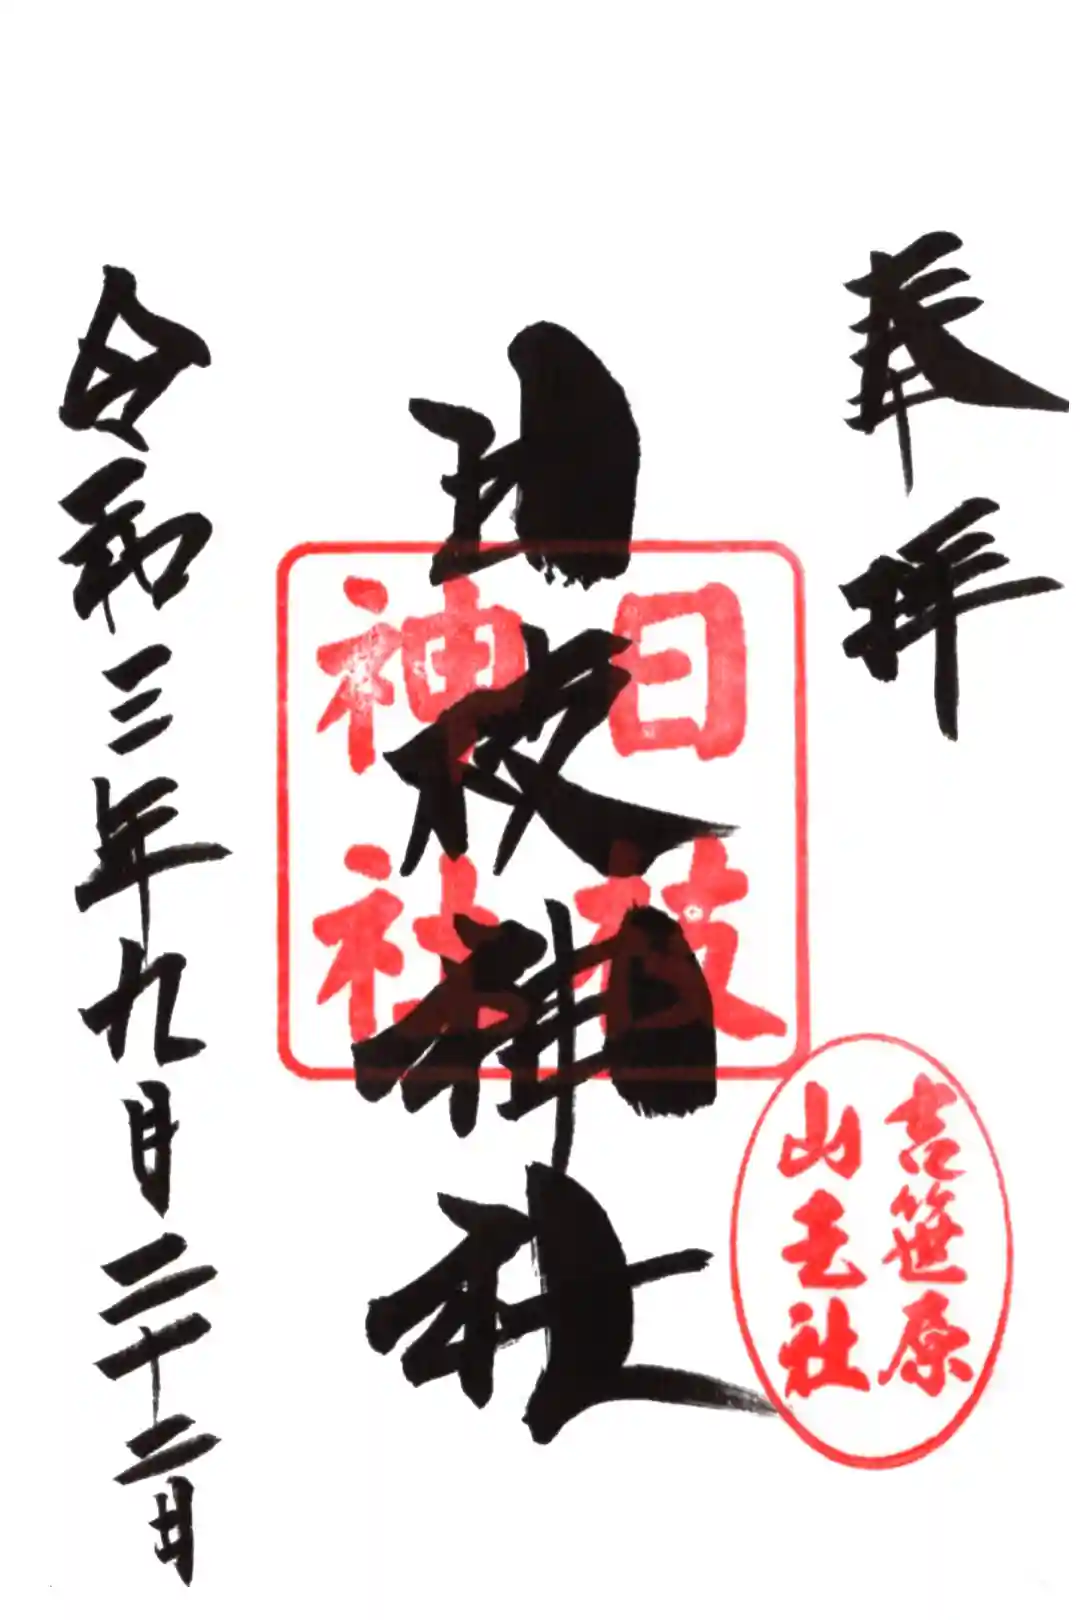 奉拝
日枝神社
日枝
神社
吉笹原
山王社
令和三年九月二十二日